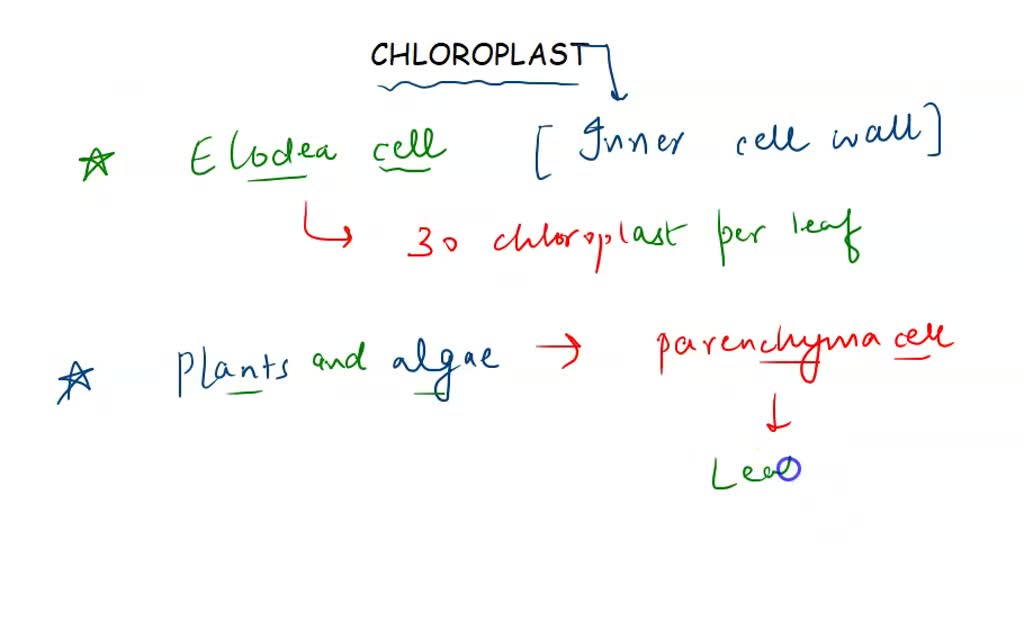 CHLOROPLAST
Elodea cell [Inner cell wall]
30 chloroplast per leaf
Plants and algae → parenchyma cell
Lea